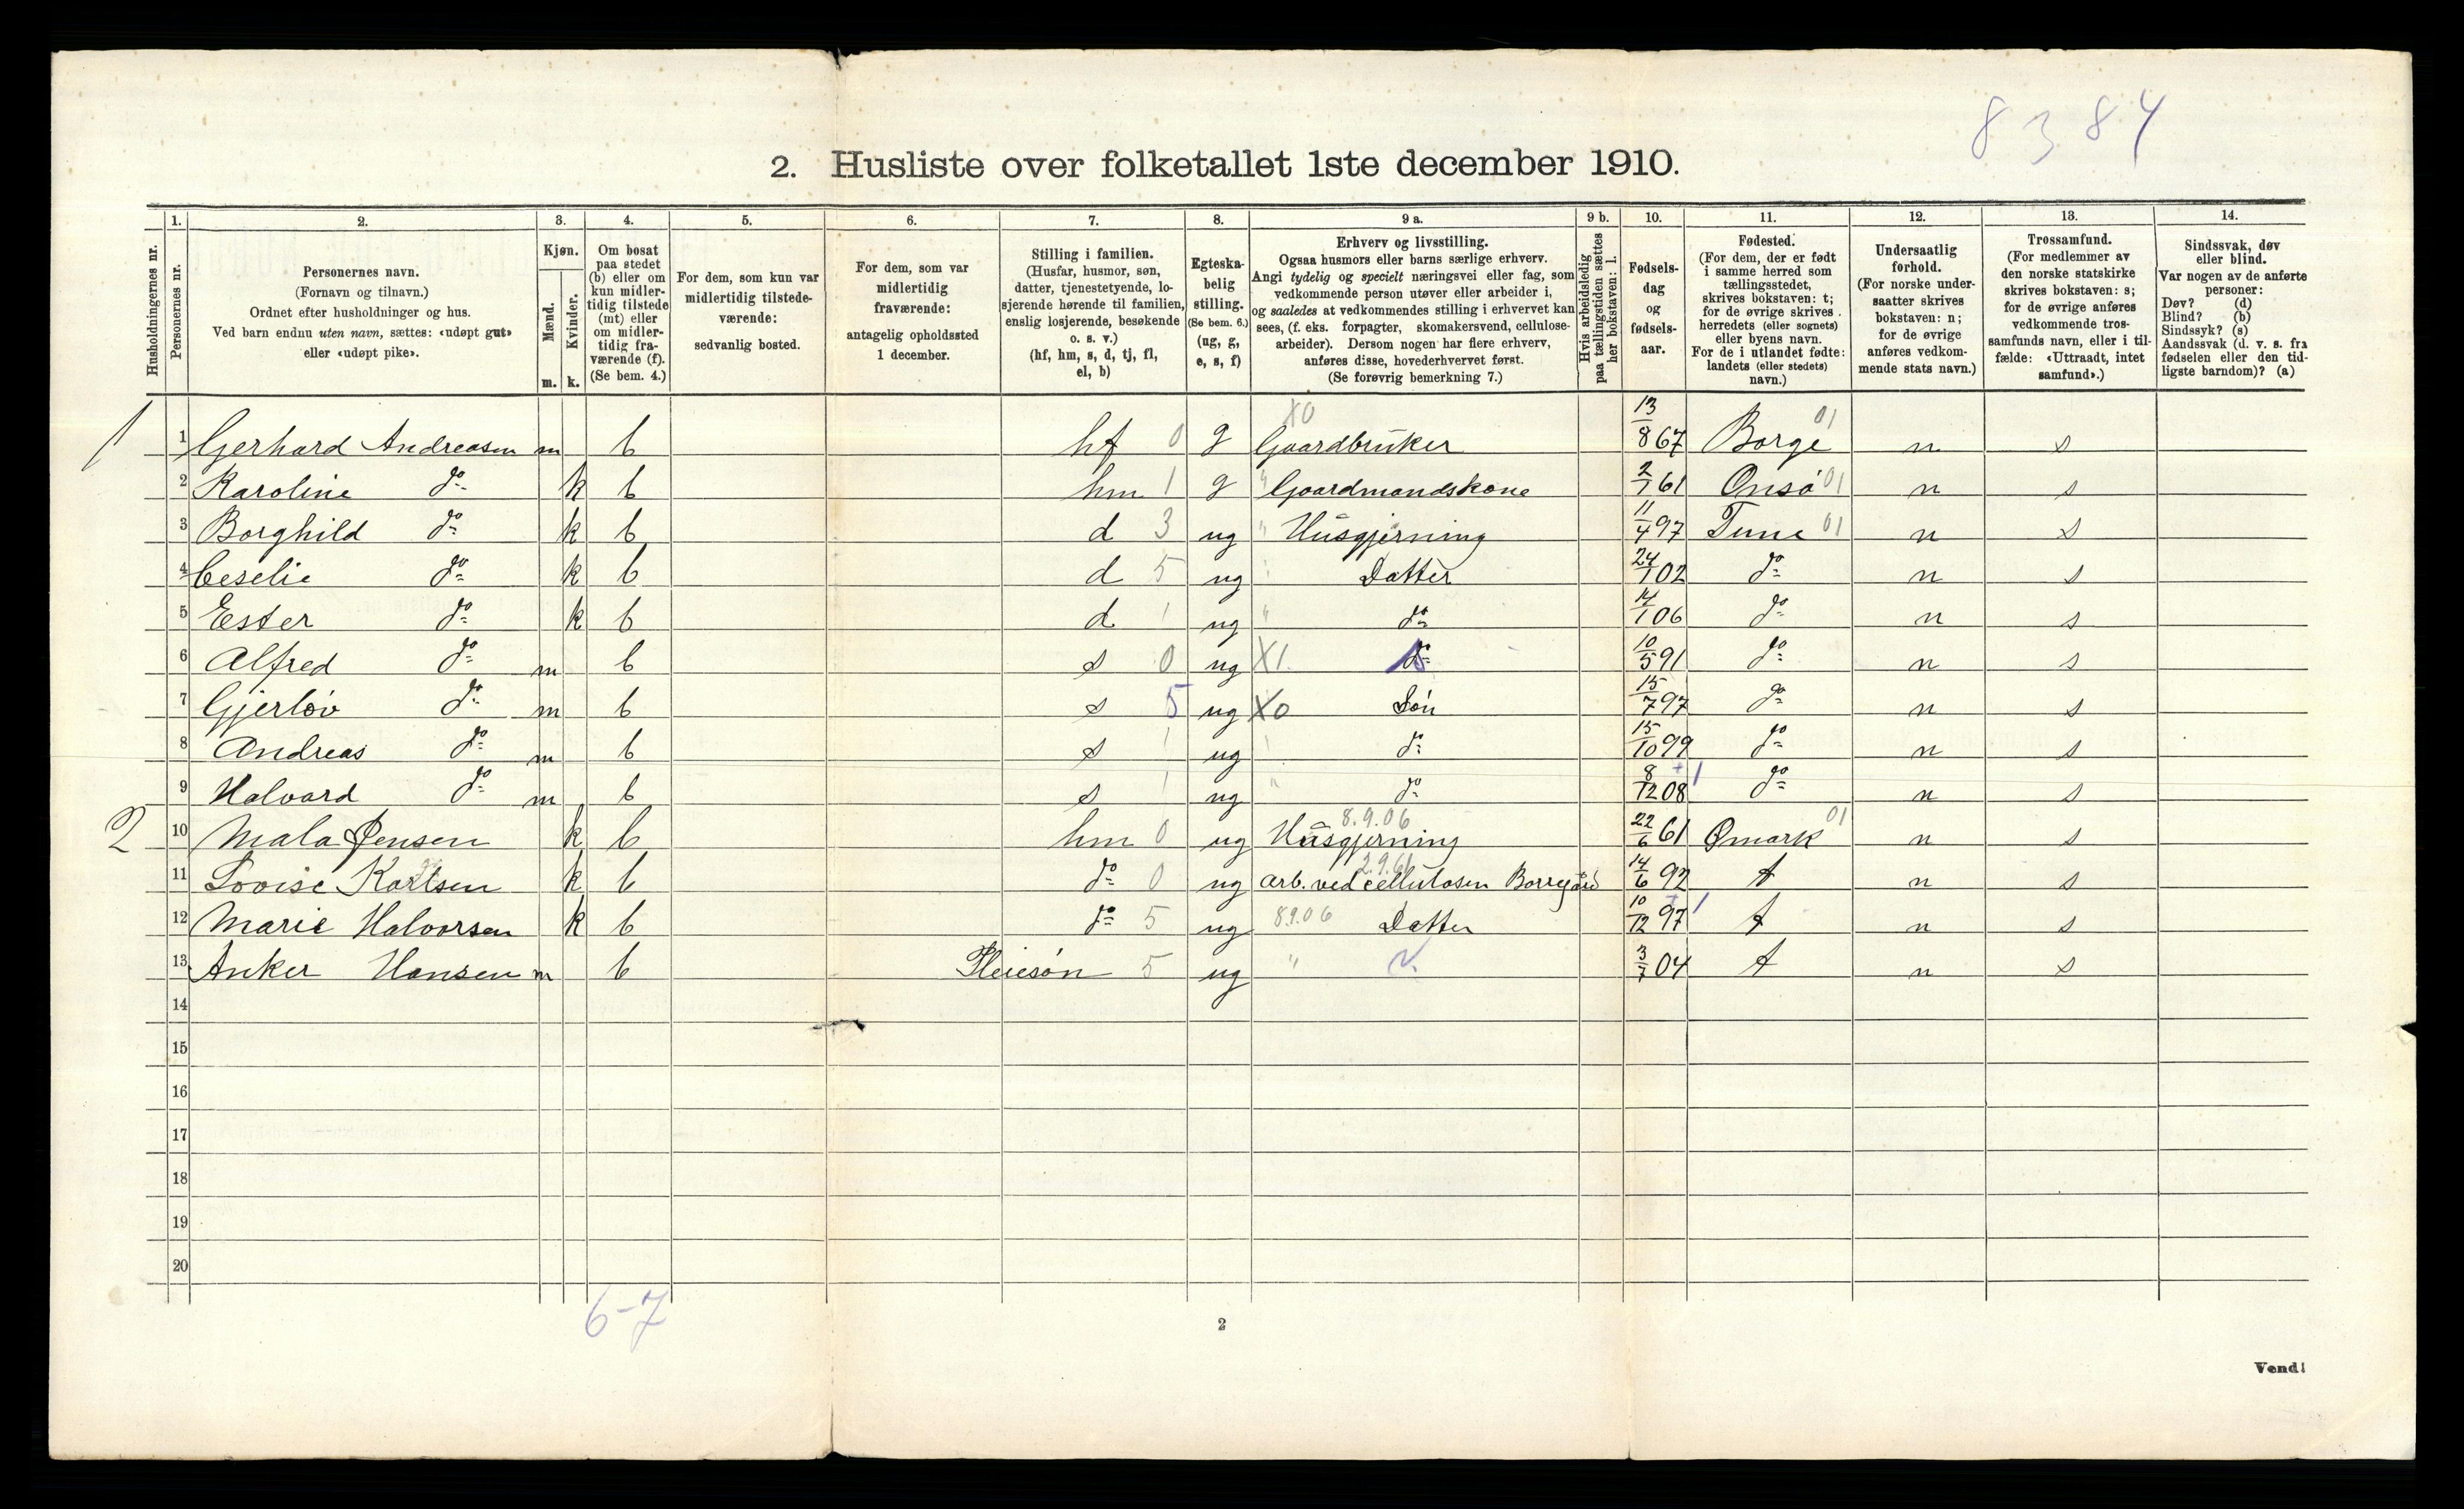 8 3 84
2. Husliste over folketallet 1ste december 1910.
1. 2. 3. 4. 5. 6. 7. 8. 9 a. 9 b. 10. 11. 12. 13. 14.
Husholdningernes nr.
Personernes nr.
Personernes navn.
(Fornavn og tilnavn.)
Ordnet efter husholdninger og hus.
Ved barn endnu uten navn, sættes: «udøpt gut»
eller «udøpt pike».
Kjøn.
Mænd.
Kvinder.
m. k.
Om bosat
paa stedet
(b) eller om
kun midler-
tidig tilstede
(mt) eller
om midler-
tidig fra-
værende (f).
(Se bem. 4.)
For dem, som kun var
midlertidig tilstede-
værende:
sedvanlig bosted.
For dem, som var
midlertidig
fraværende:
antagelig opholdssted
1 december.
Stilling i familien.
(Husfar, husmor, søn,
datter, tjenestetyende, lo-
sjerende hørende til familien,
enslig losjerende, besøkende
o. s. v.)
(hf, hm, s, d, tj, fl,
el, b)
Egteska-
belig
stilling.
(Se bem. 6.)
(ug, g,
e, s, f)
Erhverv og livsstilling.
Ogsaa husmors eller barns særlige erhverv.
Angi tydelig og specielt næringsvei eller fag, som
vedkommende person utøver eller arbeider i,
og saaledes at vedkommendes stilling i erhvervet kan
sees, (f. eks. forpagter, skomakersvend, cellulose-
arbeider). Dersom nogen har flere erhverv,
anføres disse, hovederhvervet først.
(Se forøvrig bemerkning 7.)
Hvis arbeidsledig
paa tællingstiden sættes
her bokstaven: l.
Fødsels-
dag
og
fødsels-
aar.
Fødested.
(For dem, der er født
i samme herred som
tællingsstedet,
skrives bokstaven: t;
for de øvrige skrives
herredets (eller sognets)
eller byens navn.
For de i utlandet fødte:
landets (eller stedets)
navn.)
Undersaatlig
forhold.
(For norske under-
saatter skrives
bokstaven: n;
for de øvrige
anføres vedkom-
mende stats navn.)
Trossamfund.
(For medlemmer av
den norske statskirke
skrives bokstaven: s;
for de øvrige anføres
vedkommende tros-
samfunds navn, eller i til-
fælde: «Uttraadt, intet
samfund».)
Sindssvak, døv
eller blind.
Var nogen av de anførte
personer:
Døv? (d)
Blind? (b)
Sindssyk? (s)
Aandssvak (d. v. s. fra
fødselen eller den tid-
ligste barndom)? (a)
1 1 Gerhard Andreasen m b hf 0 g X0 Gaardbruker 13/8 67 Borge 01 n s
2 Karoline do k b hm 1 g " Gaardmandskone 2/1 61 Onsø 01 n s
3 Borghild do k b d 3 ug " Husgjerning 11/4 97 Tune 01 n s
4 Ceselie do k b d 5 ug " Datter 24/1 02 do n s
5 Ester do k b d 1 ug " do 14/1 06 do n s
6 Alfred do m b s 0 ug X1. do 10/5 91 do n s
7 Gjerløv do m b s 5 ug X0 Søn 15/7 97 do n s
8 Andreas do m b s 1 ug do 15/10 99 do n s
9 Halvard do m b s 1 ug " do 8/12 08 do n s
2 10 Mala Jensen k b hm 0 ug 8.9.06 Husgjerning 22/6 61 Ømark 01 n s
11 Lovise Karlsen k b do 0 ug 2.9.61 arb. ved cellulosen Borregård 14/6 92 t n s
12 Marie Halvorsen k b do 5 ug 8.9.06 Datter 10/12 97 t n s
13 Anker Hansen m b Pleiesøn 5 ug " 3/7 04 t n s
14
15
16
17
18
19
20
6-7
2
Vend!